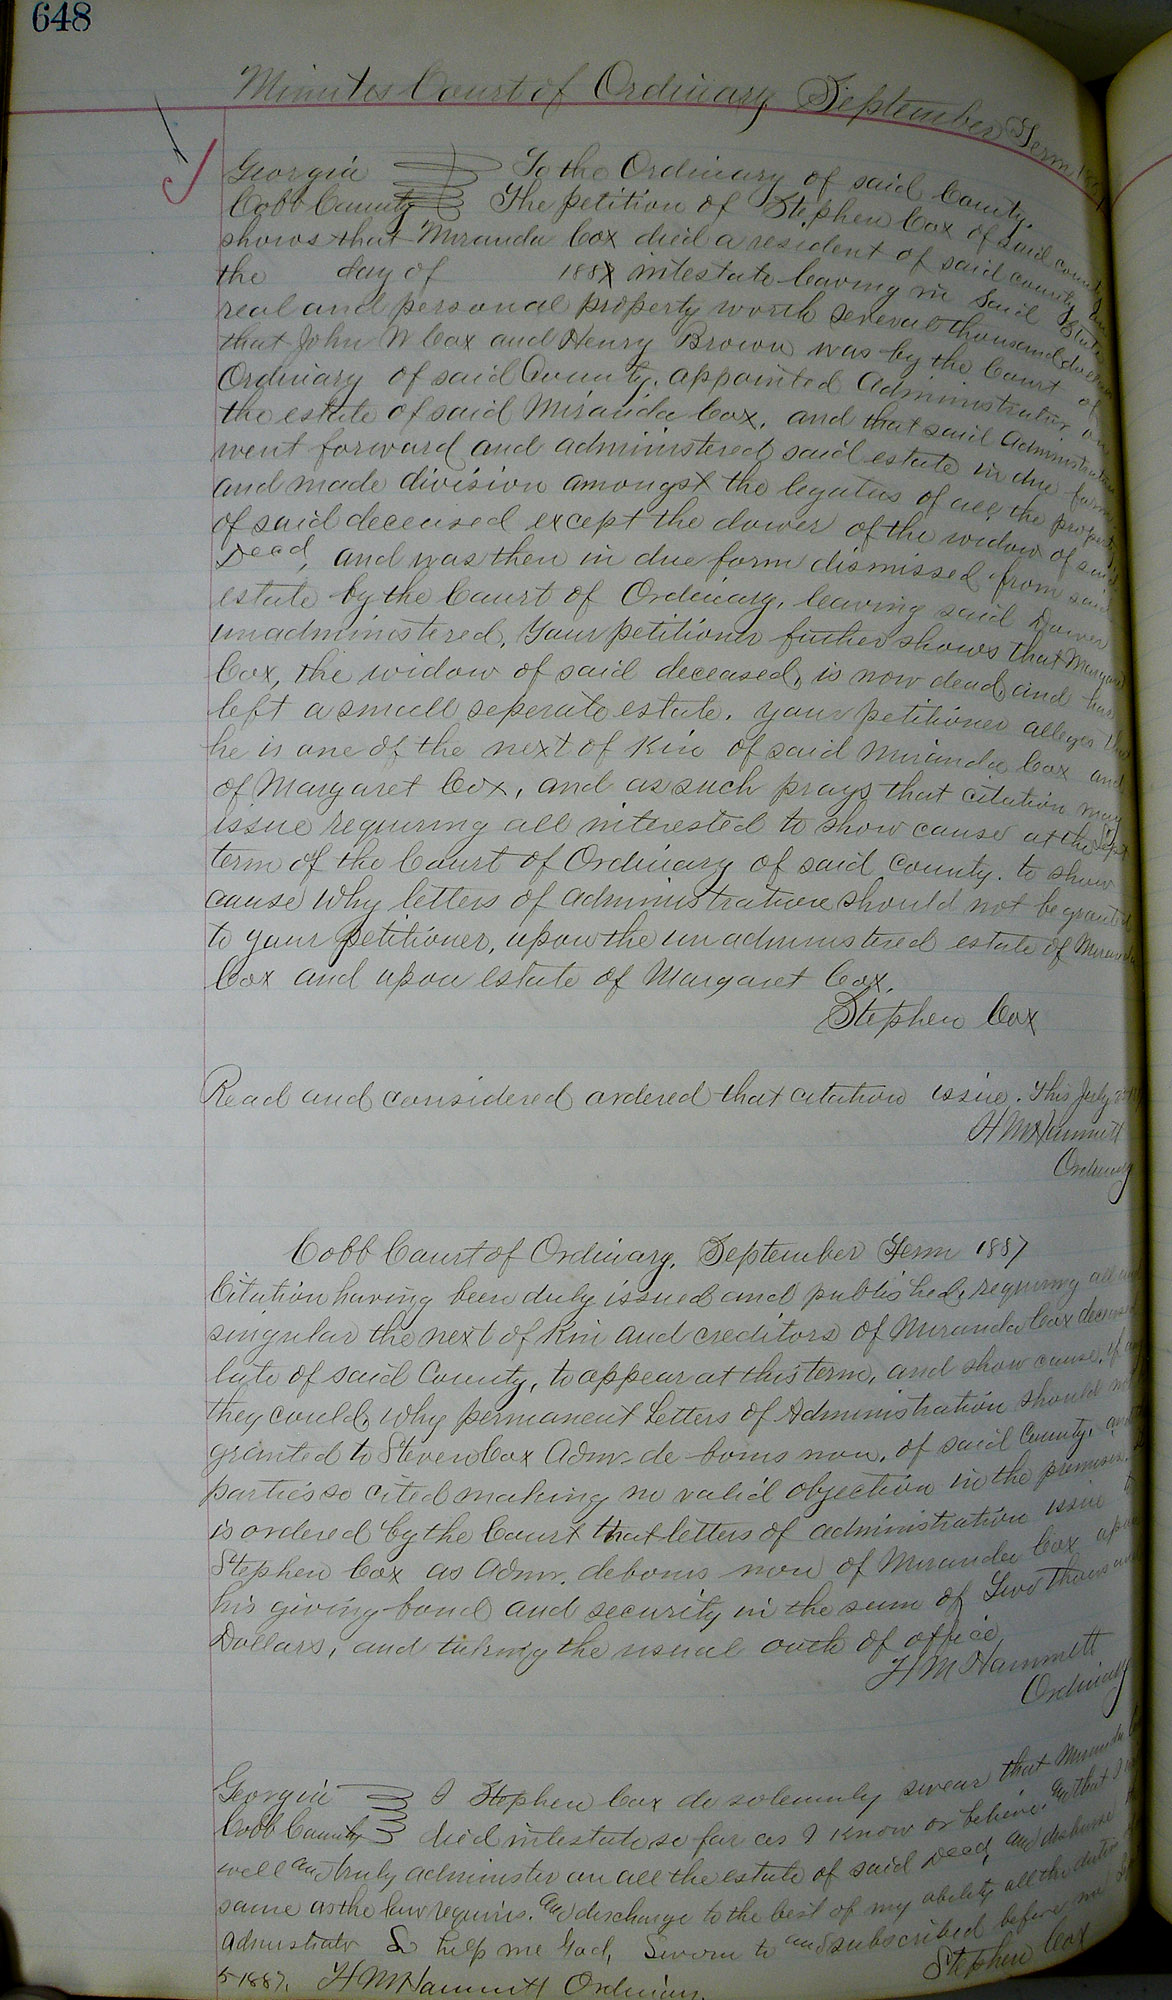 648
Minutes Court of Ordinary September Term
Georgia To the Ordinary of said County.
Cobb County The petition of Stephen Cox of said county
shows that Miranda Cox died a resident of said county
the day of 188 intestate leaving in said State
real and personal property worth several thousand dollars
that John W Cox and Henry Brown was by the Court of
Ordinary of said County, appointed Administrators on
the estate of said Miranda Cox, and that said Administrators
went forward and administered said estate in due form
and made division amongst the legatus of all the property
of said deceased except the dower of the widow of said
Dead, and was then in due form dismissed from said
estate by the Court of Ordinary, leaving said Dower
unadministered, Your petitioner further shows that Margaret
Cox, the widow of said deceased, is now dead, and has
left a small seperate estate. Your petitioner alleges that
he is one of the next of Kin of said Miranda Cox and
of Margaret Cox, and as such prays that citation may
issue requiring all interested to show cause at the Sept
term of the Court of Ordinary of said county. to show
cause why letters of administration should not be granted
to your petitioner, upon the unadministered estate of Miranda
Cox and upon estate of Margaret Cox.
Stephen Cox
Read and considered ordered that citation issue. This July
H M Hammett
Ordinary
Cobb Court of Ordinary, September Term 1887
Citation having been duly issued and published, requiring all and
singular the next of Kin and creditors of Miranda Cox deceased
late of said County, to appear at this term, and show cause, if any
they could, why permanent Letters of Administration should not
granted to Steven Cox Admr. de bonis non, of said County, and
parties so cited making no valid objection in the premises.
is ordered by the Court that letters of administration issue to
Stephen Cox as Admr. debonis non of Miranda Cox upon
his giving bond and security in the sum of Two Thousand
Dollars, and taking the usual oath of office
H M Hammett
Ordinary
Georgia I Stephen Cox do solemnly swear that Miranda
Cobb County died intestate so far as I know or believe. and that I
well and truly administer on all the estate of said Dead, and disburse the
same as the law requires. and discharge to the best of my ability all the duties
Admistrator So help me God, Sworn to and subscribed before me
5 1887. H M Hammett Ordinary. Stephen Cox